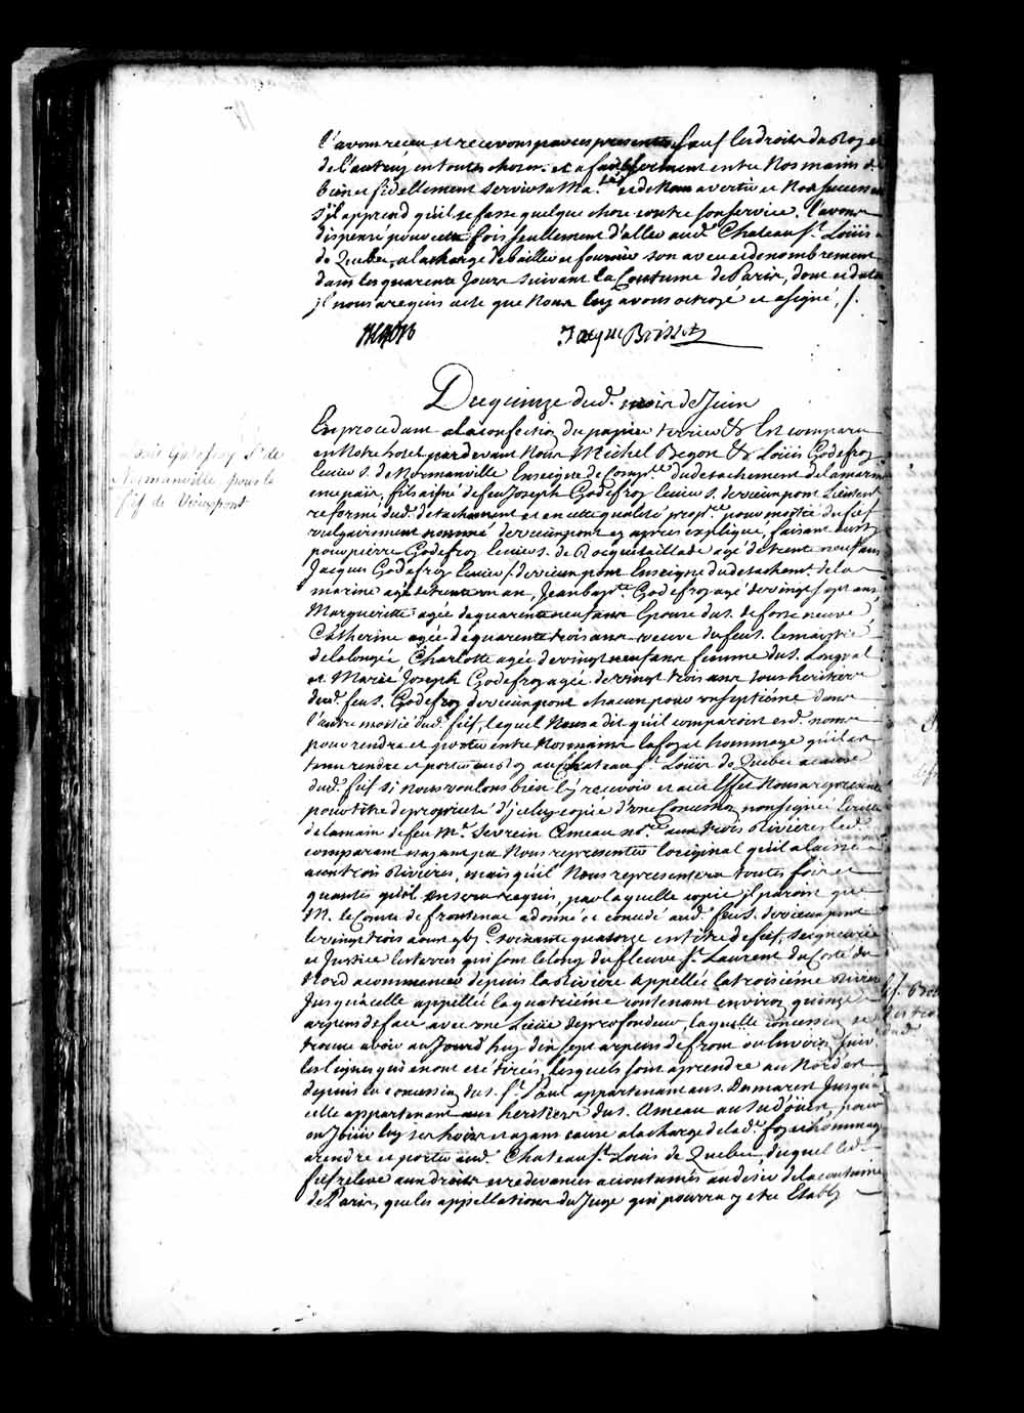 l'avons receu et recevons par ces presentes sauf les droits du Roy et
de l'autruy en toutes choses et a fait le serment entre Nos mains de
bien et fidellement servir sa Ma.té et de Nous avertir et Nos successeurs
s'il apprend qu'il se fasse quelque chose contre son service. l'avons
dispensé pour cette fois seullement d'aller aud. Chateau S.t Loüis
de Quebec, a la charge de bailler et fournir son aveu et denombrement
dans les quarente Jours suivant la Coutume de Paris, dont et du tout
il nous a requis acte que Nous luy avons octroyé et a signé, /.
Begon Jacque Brisset
Du quinze dud. mois de Juin
En procedant a la confection du papier terrier &c Est comparu
en Notre hotel pardevant Nous Michel Begon &c Loüis Godefroy
Ecuier S. de Normanville Enseigne de Comp.ie du detachement de la marine
en ce païs, fils aisné de feu Joseph Godefroy Ecuier S. de vieuxpont Lieutenant
reformé dud. detachement et en cette qualité prop.re pour moitié du fief
vulgairement nommé de vieuxpont cy apres expliqué, faisant aussy
pour pierre Godefroy Ecuier S. de Roquetaillade agé de trente neuf ans
Jacques Godefroy Ecuier S. de vieuxpont Enseigne du detachem.t de la
marine agé de trente un an, Jean bap.te Godefroy agé de vingt sept ans,
Marguerite agée de quarente neuf ans Epouse du S. de fosseneuve,
Catherine agée de quarente trois ans veuve du feu S. lemaistre
de lalongée, Charlotte agée de vingt neuf ans femme du S. Longval
et Marie Joseph Godefroy agée de vingt trois ans tous heritiers
dud. feu S. Godefroy de vieuxpont chacun pour un septiéme dans
l'autre moitié dud. fief, lequel Nous a dit qu'il comparoit esd. noms
pour rendre et porter entre Nos mains la foy et hommage qu'il est
tenu rendre et porter au Roy au Chateau S.t Loüis de Quebec a cause
dud. fief si nous voulons bien l'y recevoir et a cet Effet Nous a representé
pour titre de proprieté d'iceluy copie d'une Concession non signée Ecrite
de la main de feu M.e Severin Ameau no.re aux trois Rivieres led.
comparant n'ayant pu Nous representer l'original qu'il a laissé
aux trois Rivieres, mais qu'il Nous representera toutes fois et
quantes qu'il en sera requis, par laquelle copie il paroist que
M. le Comte de frontenac a donné et concedé aud. feu S. de vieuxpont
le vingt trois aoust 16. c soixante quatorze en titre de fief, seigneurie
et Justice les terres qui sont le long du fleuve S.t Laurent du Costé du
Nord a commencer depuis la Riviere appellée la troisiéme Riviere
Jusqu'a celle appellée la quatriéme contenant environ quinze
arpens de face avec une Lieüe de profondeur, laquelle concession se
trouve avoir au Jourd'huy dix sept arpens de front ou environ suiv.
les lignes qui en ont eté tirées, lesquels sont a prendre au Nord'est
depuis la concession du S. S.t Paul appartenant au S. Dumarest Jusqu'à
celle appartenant aux heritiers du S. Ameau au Sud'oüest, pour
en Joüir luy ses hoirs et ayans cause a la charge de la d. foy et hommage
a rendre et porter aud. Chateau S.t Loüis de Quebec duquel led.
fief releve aux droits et redevances accoutumés au desir de la coutume
de Paris, que les appellations du Juge qui pourra y etre Etably
Godefroy S.r de
Normanville pour le
fief de Vieuxpont